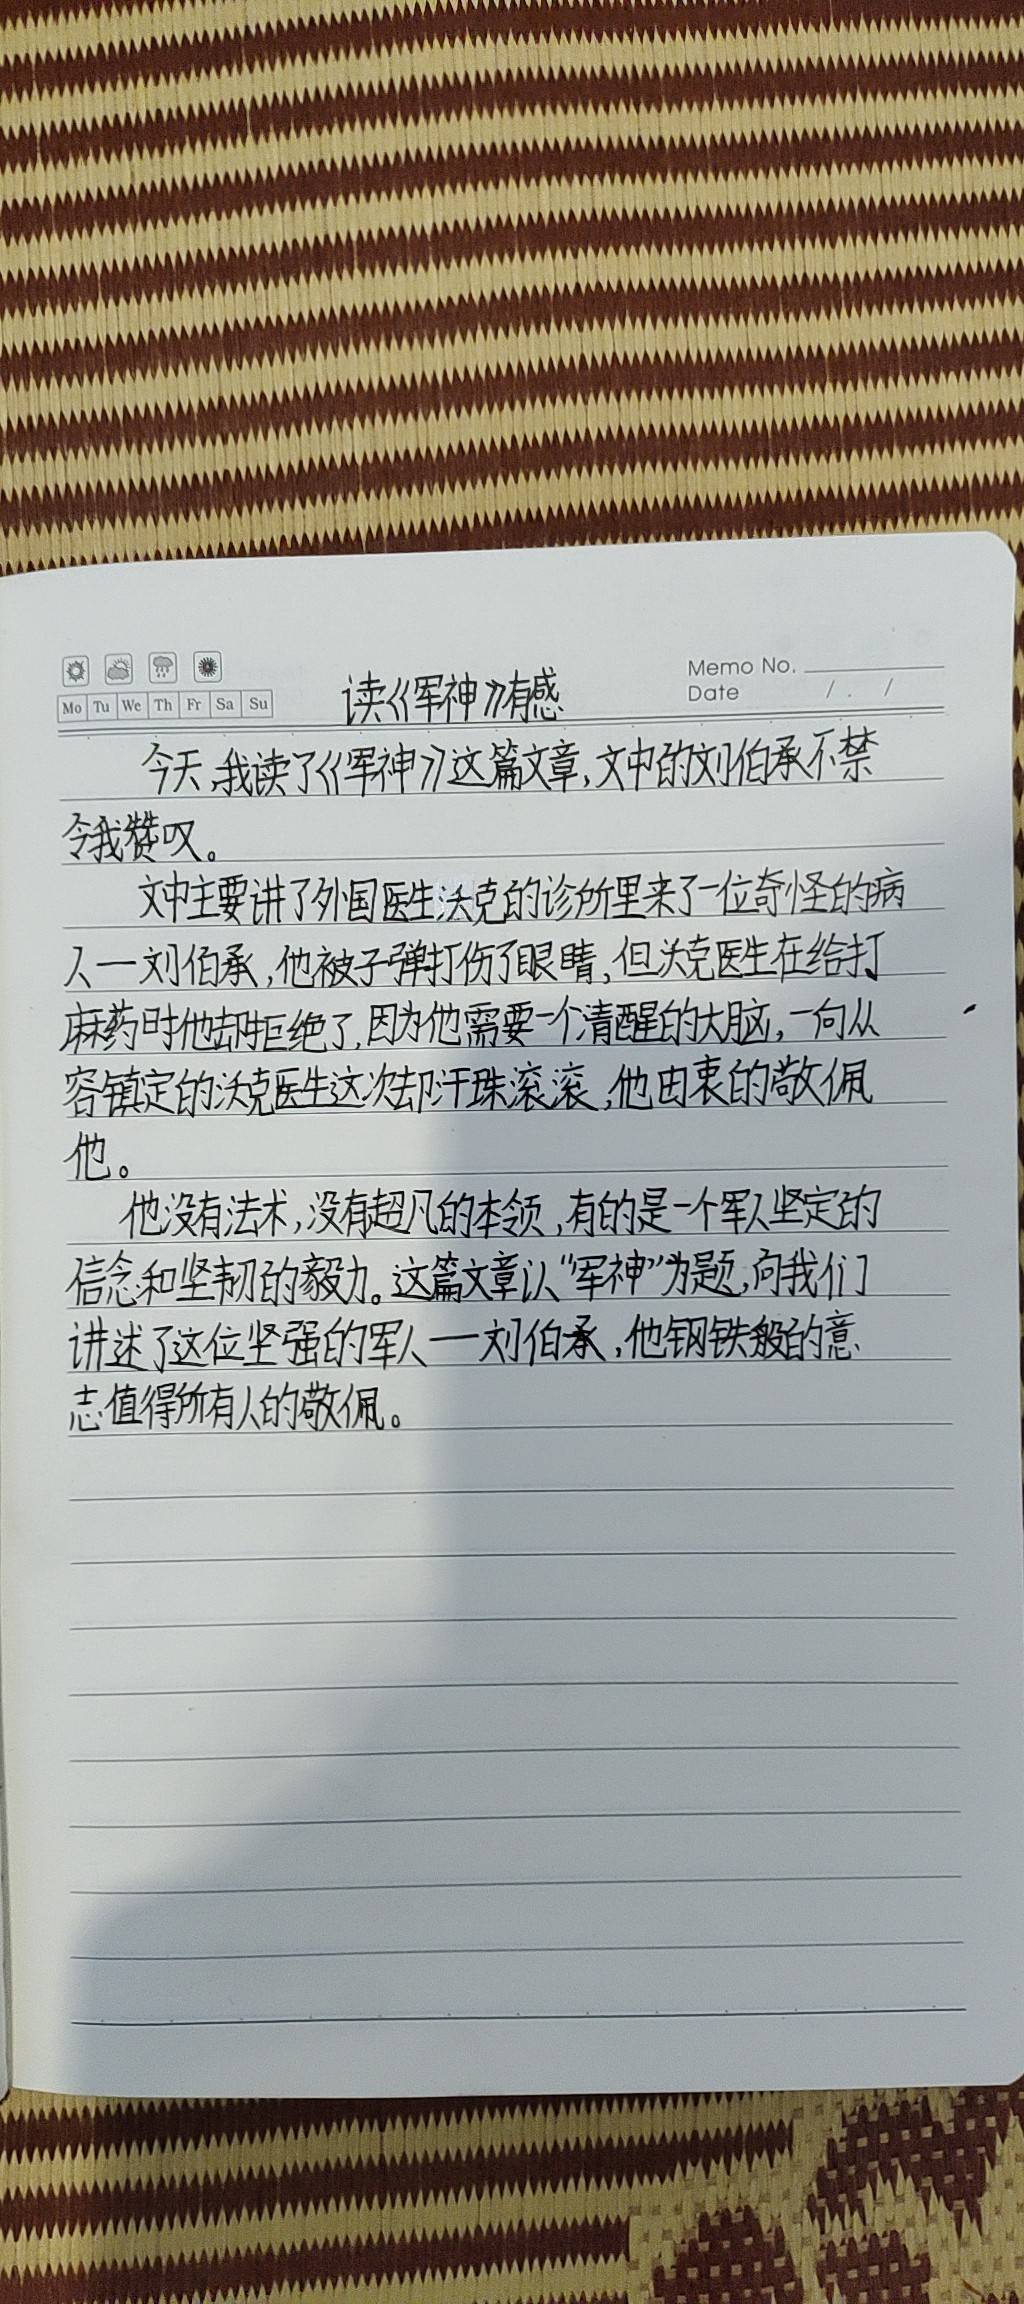 Memo No.
Mo Tu We Th Fr Sa Su
Date / /
读《军神》有感
今天,我读了《军神》这篇文章,文中的刘伯承不禁
令我赞叹。
文中主要讲了外国医生沃克的诊所里来了一位奇怪的病
人一刘伯承,他被子弹打伤了眼睛,但沃克医生在给打
麻药时他却拒绝了,因为他需要一个清醒的大脑,一向从
容镇定的沃克医生这次却汗珠滚滚,他由衷的敬佩
他。
他没有法术,没有超凡的本领,有的是一个军人坚定的
信念和坚韧的毅力。这篇文章以“军神”为题,向我们
讲述了这位坚强的军人一刘伯承,他钢铁般的意
志值得所有人的敬佩。